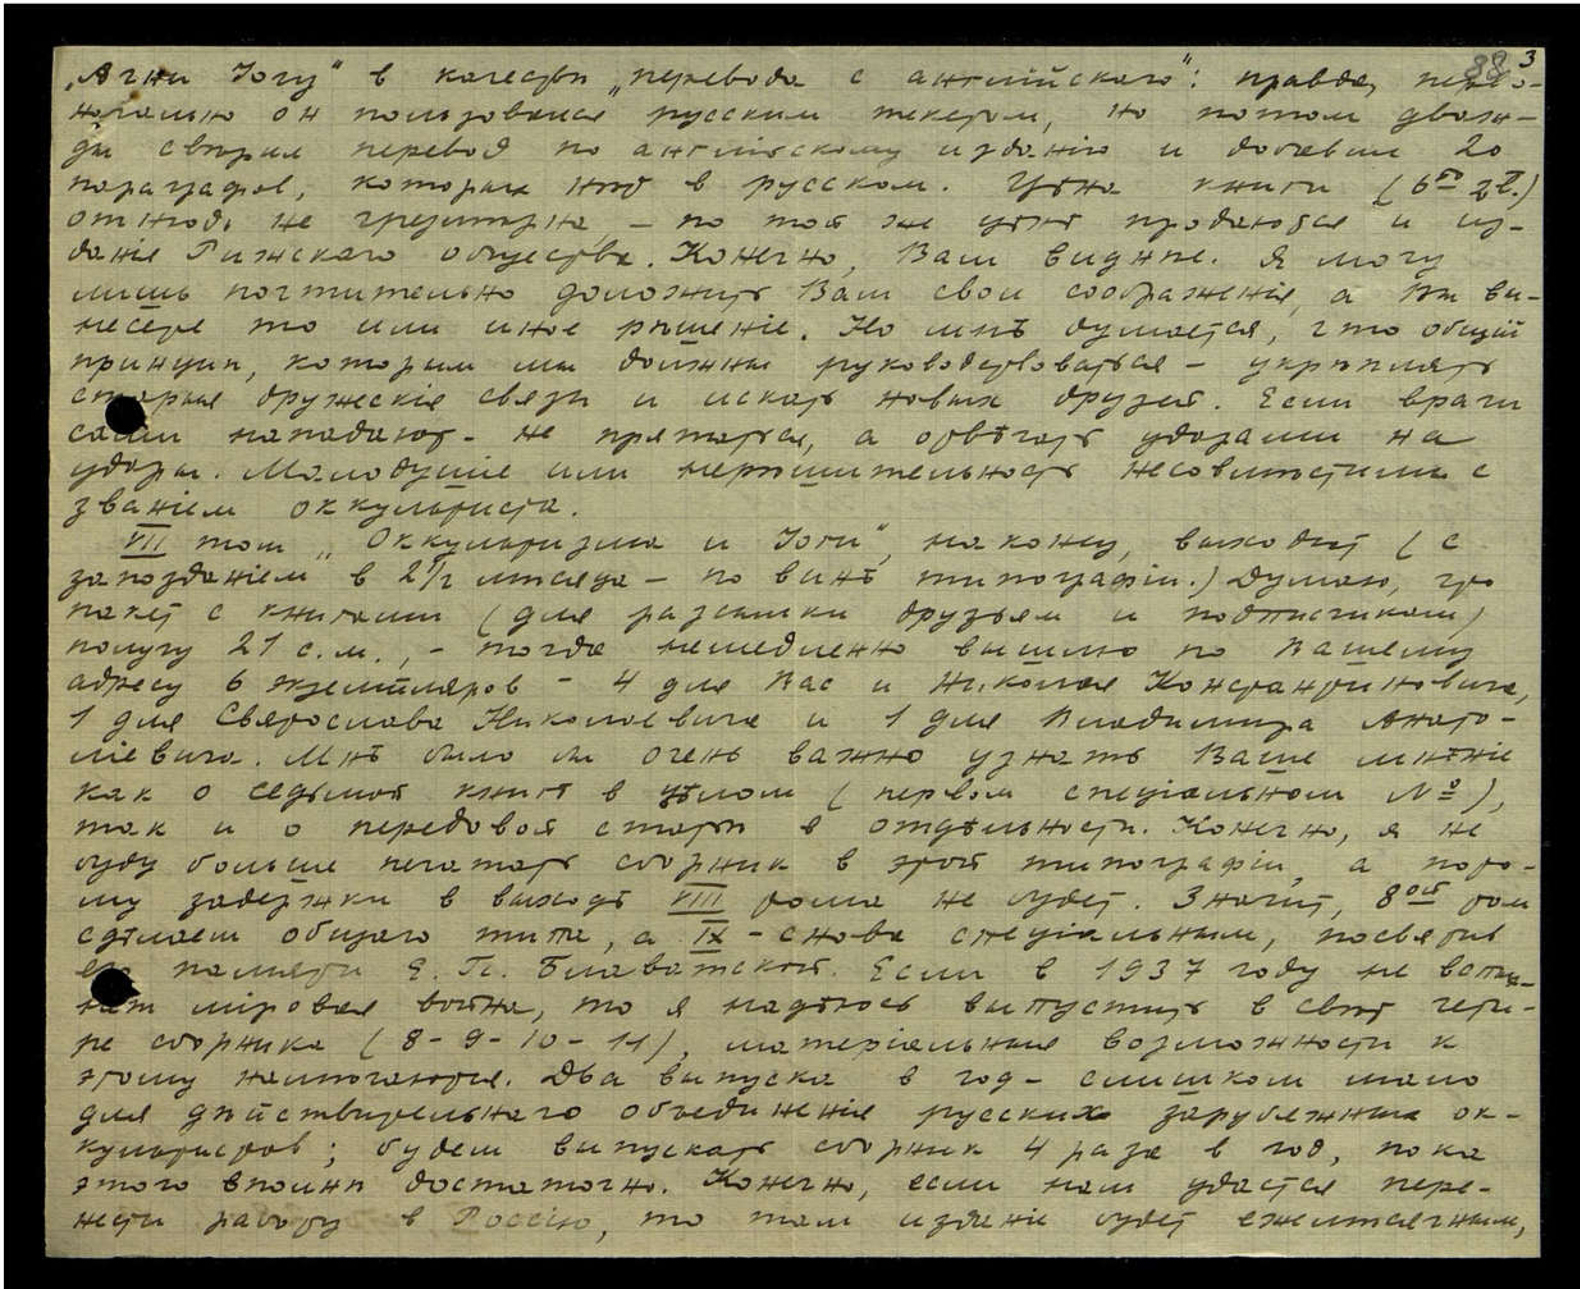 88 3
„Агни Йогу" в качествѣ „перевода с английскаго": правда, перво-
начально он пользовался русским текстом, но потом дваж-
ды свѣрил перевод по англійскому изданію и добавил 20
параграфов, которых нѣт в русском. Цѣна книги
отнюдь не чрезмѣрна, – по той же цѣнѣ продаются и из-
данія Рижскаго общества. Конечно, Вам виднѣе. Я могу
лишь почтительно доложить Вам свои соображенія, а Вы вы-
несете то или иное рѣшеніе. Но мнѣ думается, что общій
принцип, которым мы должны руководствоваться – укрѣплять
старыя дружескія связи и искать новых друзей. Если враги
сами нападают – не прятаться, а отвѣчать ударами на
удары. Малодушіе или нерѣшительность несовмѣстимы с
званіем оккультиста.
VII том „Оккультизма и Йоги", наконец, выходит (с
запозданіем в 2½ мѣсяца – по винѣ типографіи.) Думаю, что
пакет с книгами (для разсылки друзьям и подписчикам)
получу 21 с.м., – тогда немедленно вышлю по Вашему
адресу 6 экземпляров – 4 для Вас и Николая Константиновича,
1 для Святослава Николаевича и 1 для Владимира Анато-
ліевича. Мнѣ было бы очень важно узнать Ваше мнѣніе
как о седьмой книгѣ в цѣлом (первом спеціальном №),
так и о передовой статьѣ в отдѣльности. Конечно, я не
буду больше печатать сборник в этой типографіи, а пото-
му задержки в выходѣ VIII тома не будет. Значит, 8ой том
сдѣлаем общаго типа, а IX – снова спеціальным, посвятив
его памяти Е. П. Блаватской. Если в 1937 году не вспых-
нет міровая война, то я надѣюсь выпустить в свѣт четы-
ре сборника (8-9-10-11), матеріальныя возможности к
этому намѣчаются. Два выпуска в год – слишком мало
для дѣйствительнаго объединенія русских зарубежных ок-
культистов; будем выпускать сборник 4 раза в год, пока
этого вполнѣ достаточно. Конечно, если нам удастся пере-
нести работу в Россію, то там изданіе будет ежемѣсячным,